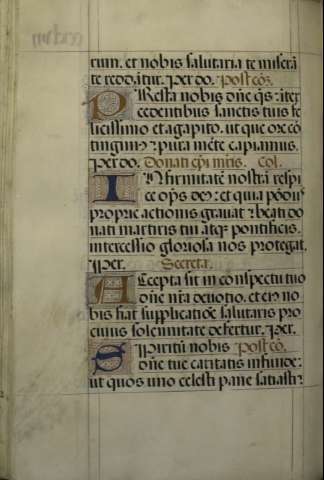 tium. et nobis salutaria te misera
te reddātur. Per do. Post cō.
PResta nobis dn̄e q̄s: īter
cedentibus sanctis tuis fe
licissimo et agapito. ut que ore cō
tingimꝰ: pura mēte capiamus.
Per do. Donati ep̄i mr̄is. Col.
INfirmitatē nostrā respi
ce op̄s deꝰ: et quia pōdus
proprie actionis grauat: beati do
nati martiris tui atq̄ pontificis.
intercessio gloriosa nos protegat.
Per. Secreta.
ACcepta sit in conspectu tuo
dn̄e nr̄a deuotio. et eiꝰ no
bis fiat supplicatiōe salutaris pro
cuius solennitate defertur. Per.
SPiritū nobis Post cō.
dn̄e tue caritatis infunde:
ut quos uno celesti pane satiasti: